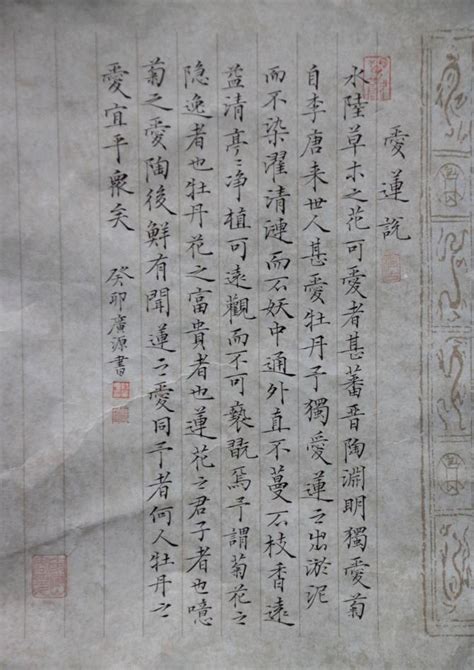 愛蓮說
水陸草木之花可愛者甚蕃晉陶淵明獨愛菊
自李唐来世人甚愛牡丹予獨愛蓮之出淤泥
而不染濯清漣而不妖中通外直不蔓不枝香遠
益清亭〻净植可遠觀而不可褻翫焉予謂菊花之
隐逸者也牡丹花之富貴者也蓮花之君子者也噫
菊之愛陶後鮮有聞蓮之愛同予者何人牡丹之
愛宜乎眾矣
癸卯廣源書